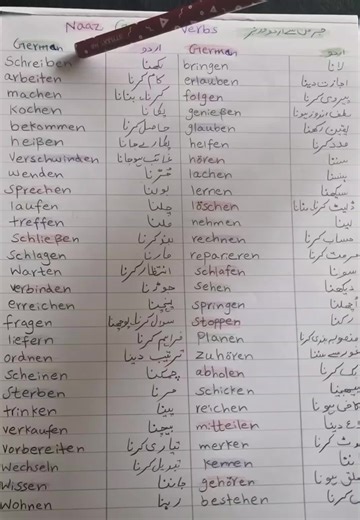 Naaz verbs
German اردو German اردو
Schreiben لکھنا bringen لانا
arbeiten کام کرنا erlauben اجازت دینا
machen کرنا، بنانا folgen پیروی کرنا
kochen پکانا genießen
bekommen حاصل کرنا glauben یقین رکھنا
heißen helfen مدد کرنا
verschwinden غائب ہوجانا hören سننا
wenden lachen ہنسنا
sprechen بولنا lernen سیکھنا
laufen چلنا löschen
treffen ملنا nehmen لینا
Schließen بند کرنا rechnen حساب کرنا
Schlagen مارنا reparieren مرمت کرنا
warten انتظار کرنا schlafen سونا
verbinden جوڑنا sehen دیکھنا
erreichen پہنچنا springen اچھلنا
fragen سوال کرنا، پوچھنا Stoppen رکنا
liefern فراہم کرنا Planen
ordnen ترتیب دینا zuhören
Scheinen چمکنا abholen
Sterben مرنا schicken
trinken پینا reichen
verkaufen بیچنا mitteilen
vorbereiten تیاری کرنا merken
Wechseln تبدیل کرنا kennen
Wissen جاننا gehören
Wohnen رہنا bestehen